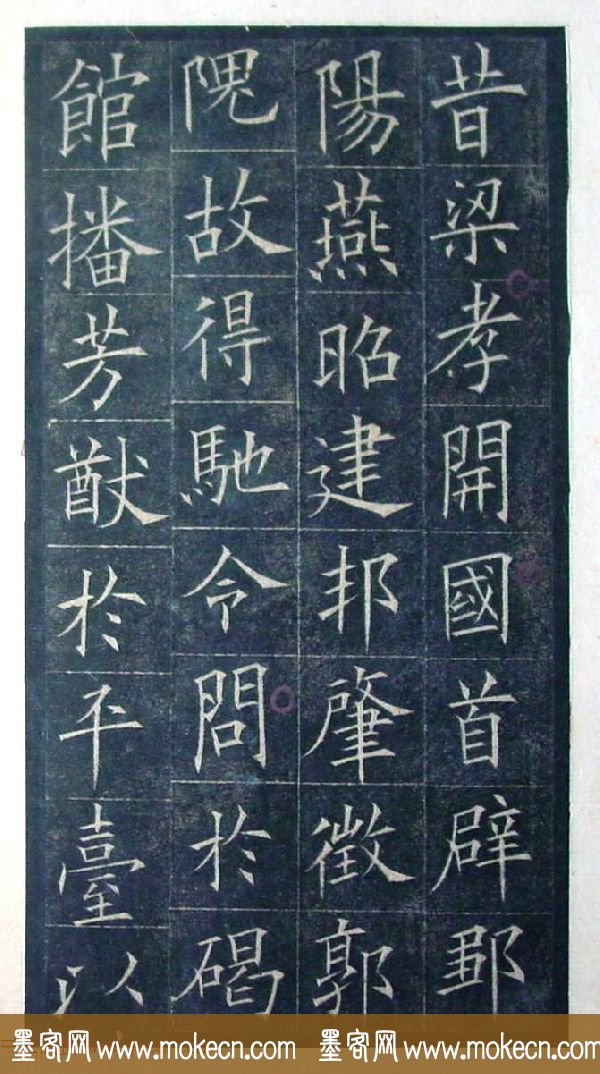 昔梁孝開國首辟鄒
陽燕昭建邦肇徵郭
隗故得馳令問於碣
館播芳猷於平臺以
墨客网 www.mokecn.com 墨客网 www.mokecn.com